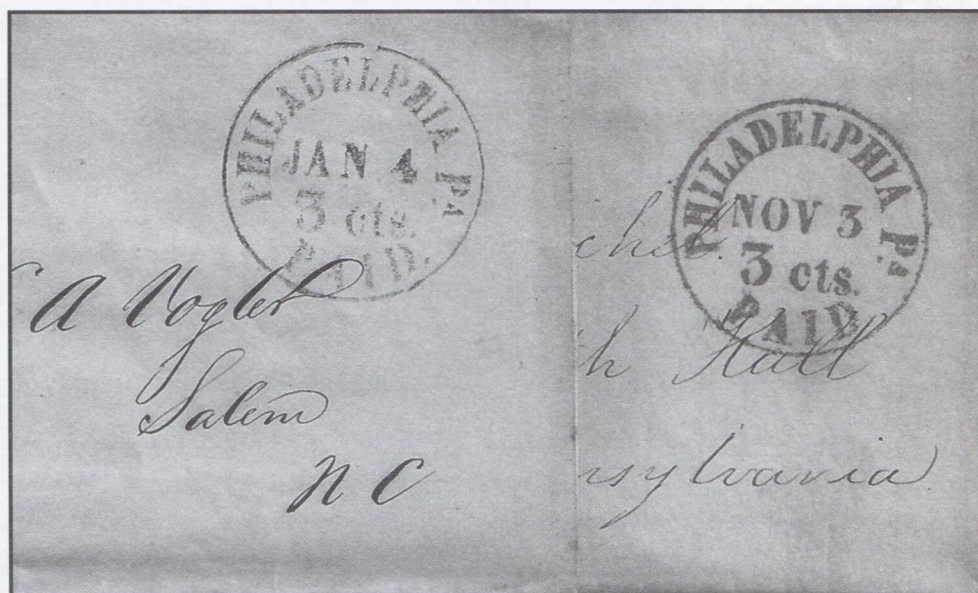 PHILADELPHIA Pa.
JAN 4
3 cts.
PAID.
A Vogler
Salem
N C
PHILADELPHIA Pa.
NOV 3
3 cts.
PAID.
chel.
h Hall
nsylvania